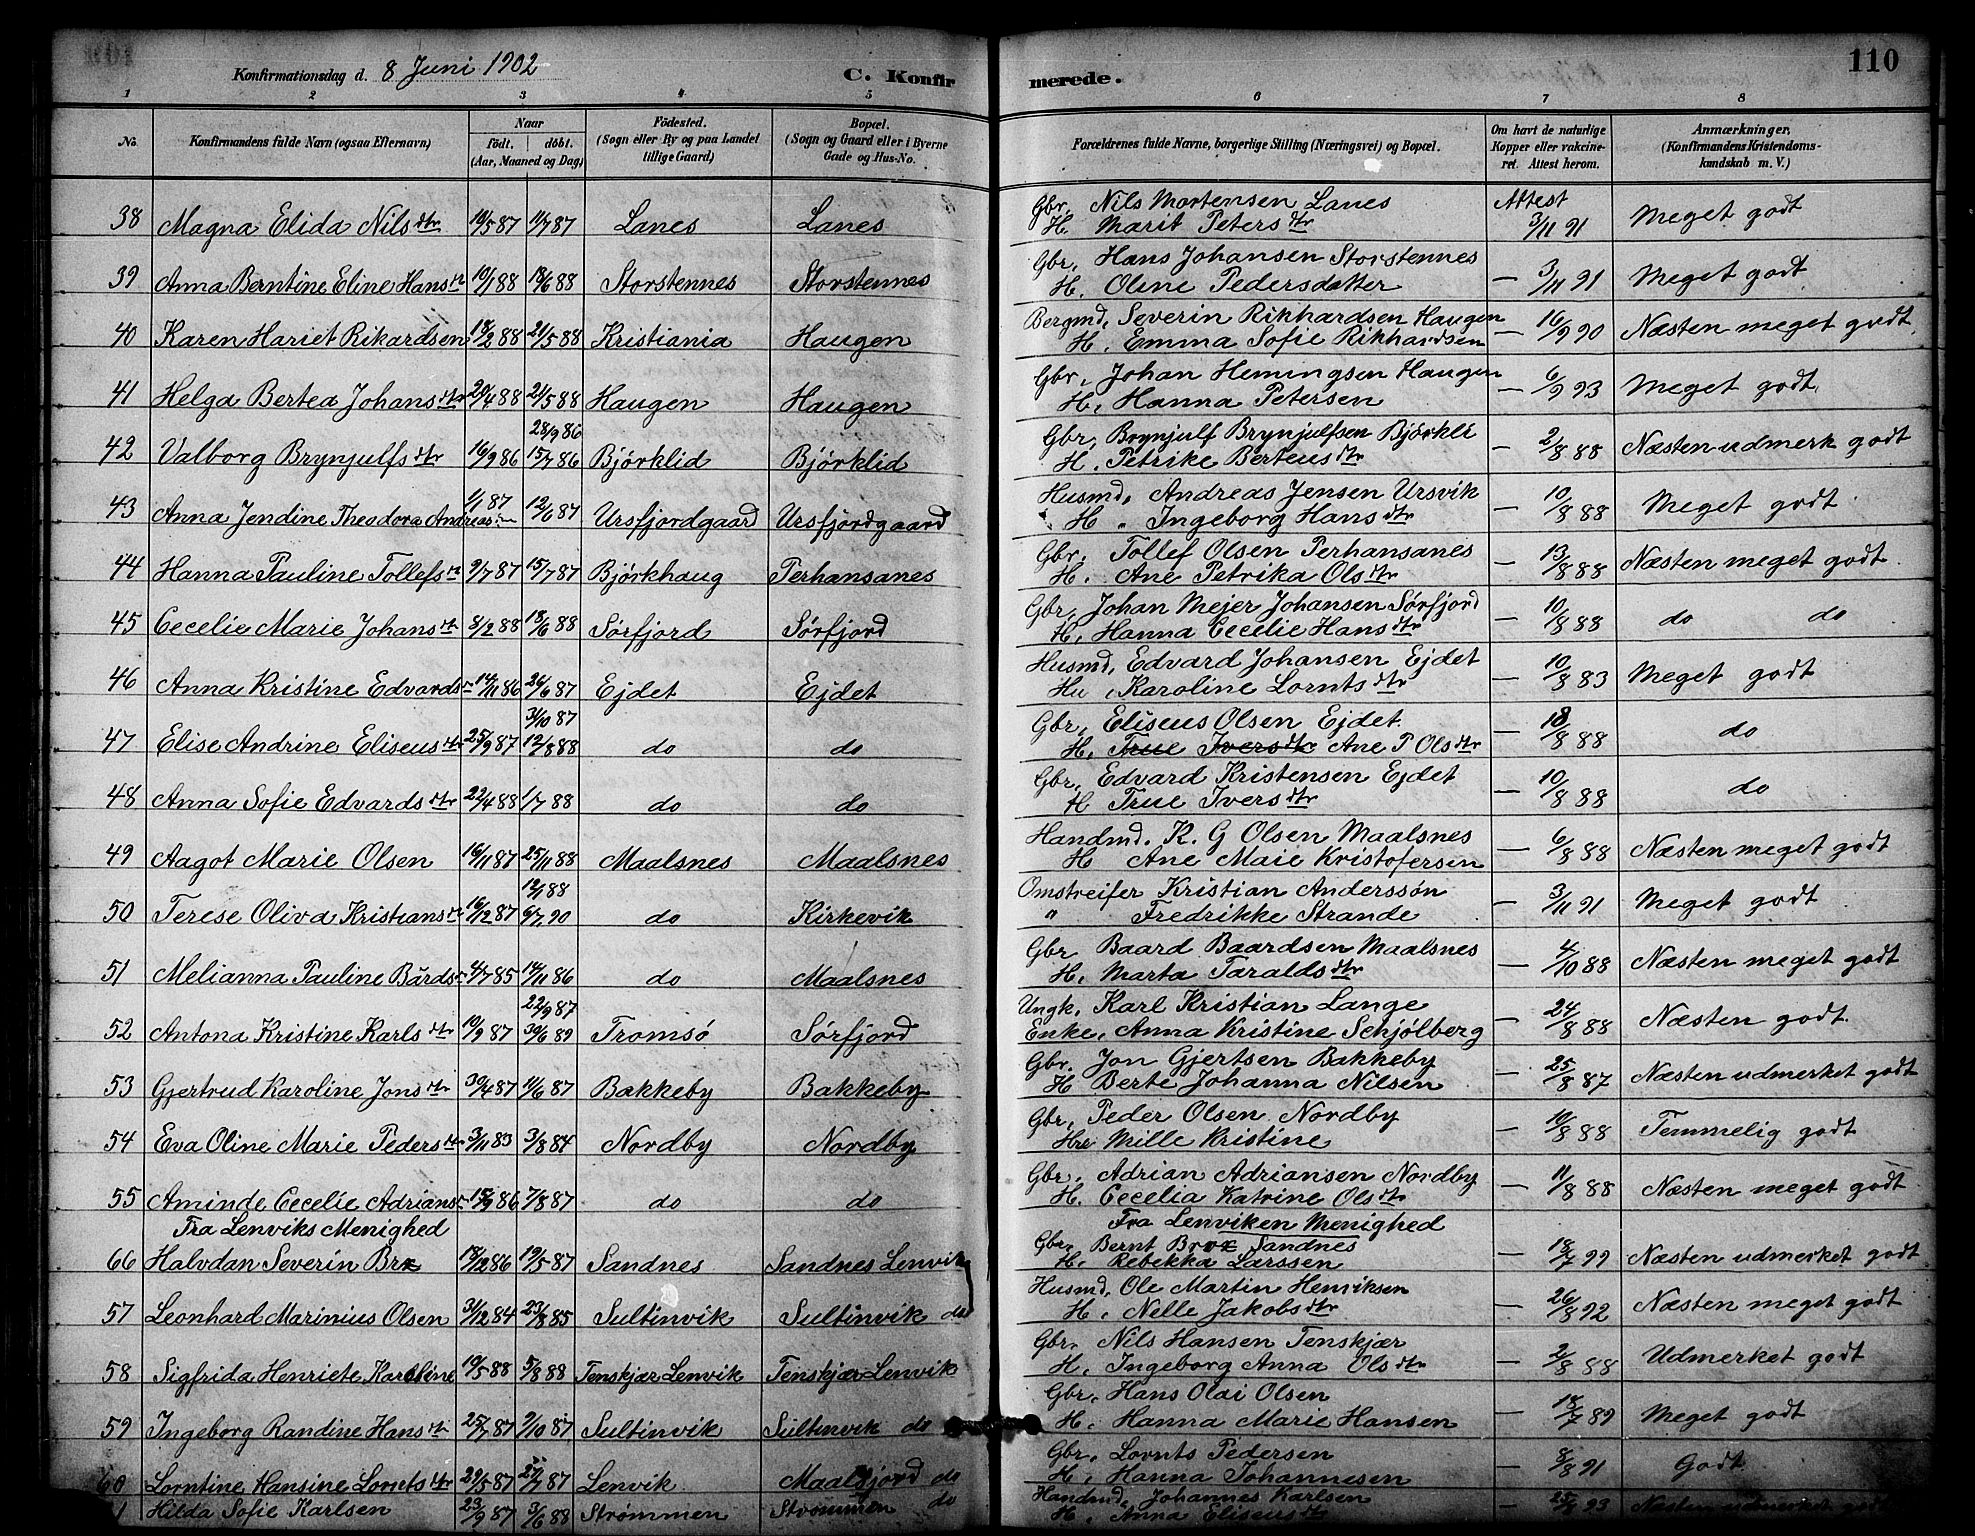 Konfirmationsdag d. 8 Juni 1902 C. Konfirmerede. 110
1 2 3 4 5 6 7 8
No. Konfirmandens fulde Navn (ogsaa Efternavn) Naar født. døbt. (Aar, Maaned og Dag) Fødested. (Sogn eller By og paa Landet tillige Gaard) Bopæl. (Sogn og Gaard eller i Byerne Gade og Hus-No. Forældrenes fulde Navne, borgerlige Stilling (Næringsvei) og Bopæl. Om havt de naturlige Kopper eller vaccineret. Attest herom. Anmærkninger, (Konfirmandens Kristendomskundskab m. V.)
Gbr. Nils Mortensen Lanes Attest
38 Magna Elida Nilsdtr 10/5 87 11/7 87 Lanes Lanes H. Marit Petersdtr 3/11 91 Meget godt
Gbr, Hans Johansen Storstennes
39 Anna Berntine Eline Hansdtr 10/1 88 18/6 88 Storstennes Storstennes H. Oline Pedersdatter — 3/11 91 Meget godt
Bergmd, Severin Rikhardsen Haugen
40 Karen Hariet Rikardsen 18/2 88 21/5 88 Kristiania Haugen H, Emma Sofie Rikhardsen — 16/9 90 Næsten meget godt
Gbr, Johan Hemingsen Haugen
41 Helga Bertea Johansdtr 20/4 88 21/5 88 Haugen Haugen H, Hanna Petersen — 6/9 93 Meget godt
28/9 86 Gbr, Brynjulf Brynjulfsen Bjørkli
42 Valborg Brynjulfsdtr 16/9 86 15/7 86 Bjørklid Bjørklid H. Petrike Berteusdtr — 2/8 88 Næsten udmerk godt
Husmd, Andreas Jensen Ursvik
43 Anna Jendine Theodora Andreas 1/1 87 12/6 87 Ursfjordgaard Ursfjordgaard H. Ingeborg Hansdtr — 10/8 88 Meget godt
Gbr, Tollef Olsen Perhansanes
44 Hanna Pauline Tollefsdtr 9/7 87 15/7 87 Bjørkhaug Perhansanes H. Ane Petrika Olsdtr — 13/8 88 Næsten meget godt
Gbr, Johan Mejer Johansen Sørfjord
45 Cecelie Marie Johansdtr 8/2 88 18/6 88 Sørfjord Sørfjord H, Hanna Cecelie Hansdtr — 10/8 88 do do
Husmd, Edvard Johansen Ejdet
46 Anna Kristine Edvards 14/11 86 26/6 87 Ejdet Ejdet Hu, Karoline Lorntsdtr — 10/8 83 Meget godt
3/10 87 Gbr, Eliseus Olsen Ejdet
47 Elise Andrine Eliseusdtr 25/9 87 12/8 88 do do H, True Iversdtr Ane P Olsdtr — 18/8 88 do
Gbr, Edvard Kristensen Ejdet
48 Anna Sofie Edvardsdtr 22/4 88 1/7 88 do do H True Iversdtr — 10/8 88 do
Handmd. K. G Olsen Maalsnes
49 Aagot Marie Olsen 16/11 87 25/11 88 Maalsnes Maalsnes H Ane Maie Kristofersen — 6/8 88 Næsten meget godt
12/1 88 Omstreifer Kristian Anderssøn
50 Terese Oliva Kristiansdtr 16/12 87 6/7 90 do Kirkevik " Fredrikke Strande — 3/11 91 Meget godt
Gbr Baard Baardsen Maalsnes
51 Melianna Pauline Bårds 4/7 85 14/11 86 do Maalsnes H, Marta Taraldsdtr — 4/10 88 Næsten meget godt
22/9 87 Ungk, Karl Kristian Lange
52 Antona Kristine Karlsdtr 10/9 87 30/6 89 Tromsø Sørfjord Enke, Anna Kristine Schjølberg — 24/8 88 Næsten godt
Gbr. Jon Gjertsen Bakkeby
53 Gjertrud Karoline Jonsdtr 30/4 87 11/6 87 Bakkeby Bakkeby H Berte Johanna Nilsen — 25/8 87 Næsten udmerket godt
Gbr, Peder Olsen Nordby
54 Eva Oline Marie Pedersdtr 3/11 83 3/8 84 Nordby Nordby Hu Mille Kristine — 10/8 88 Temmelig godt
Gbr, Adrian Adriansen Nordby
55 Aminde Cecelie Adrians 15/9 86 7/8 87 do do H. Cecelia Katrine Olsdtr — 11/8 88 Næsten meget godt
Fra Lenviks Menighed Fra Lenviken Menighed
Gbr, Bernt Brox Sandnes
66 Halvdan Severin Brx 18/12 86 19/5 87 Sandnes Sandnes Lenvik H, Rebekka Larssen — 18/7 99 Næsten udmerket godt
Husmd, Ole Martin Henriksen
57 Leonhard Marinius Olsen 31/12 84 23/8 85 Sultinvik Sultinvik do H, Nelle Jakobsdtr — 26/8 92 Næsten meget godt
Gbr, Nils Hansen Tenskjær
58 Sigfrida Henriete Karoline 19/5 88 5/8 88 Tenskjær Lenvik Tenskjær Lenvik H, Ingeborg Anna Olsdtr — 2/8 88 Udmerket godt
Gbr, Hans Olai Olsen
59 Ingeborg Randine Hansdtr 25/7 87 9/10 87 Sultinvik Sultinvik do H. Hanna Marie Hansen — 18/7 89 Meget godt
Gbr, Lornts Pedersen
60 Lorntine Hansine Lorntsdtr 29/5 87 /7 87 Lenvik Maalsfjord do H, Hanna Johannesen — 8/8 91 Godt
Handmd, Johannes Karlsen
1 Hilda Sofie Karlsen 23/9 87 3/6 88 Strømmen Strømmen do H. Anna Eliseusdtr — 93 Næsten udmerket godt